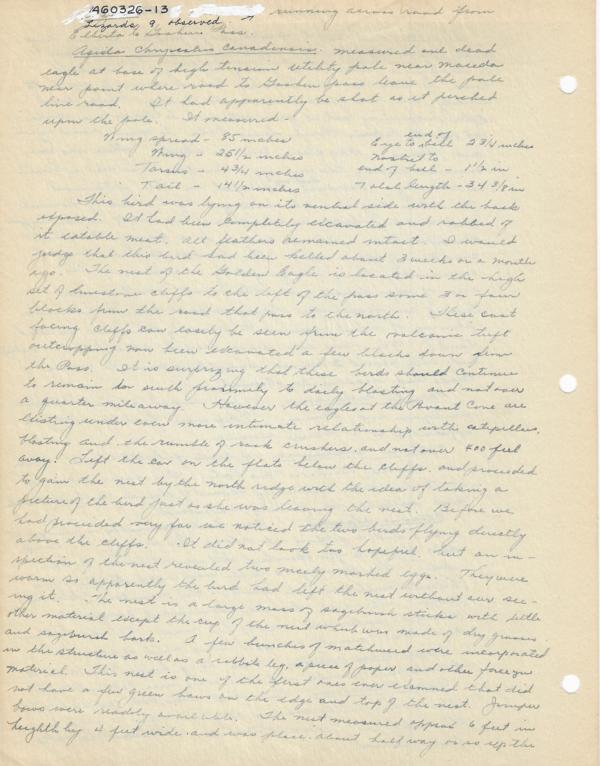 A60326-13
running across road from
Lizards, 9, observed.
Elberta to Goshen Pass.
Aquila Chrysaetos Canadensis. measured one dead
eagle at base of high tension utility pole near
near point where road to Goshen pass leave the pole
line road. It had apparently be shot as it perched
upon the pole. It measured -
Wing spread - 85 inches
Wing - 25 1/2 inches
Tarsus - 4 3/4 inches
Tail - 14 1/2 inches
end of
Eye to bill 2 3/4 inches
nostril to
end of bill - 1 1/2 in
Total length - 34 3/8 in
This bird was lying on its ventral side with the back
exposed. It had been completely excavated and robbed of
it eatable meat. All feathers remained intact. I would
judge that this bird had been killed about 3 weeks or a month
ago. The nest of the Golden Eagle is located in the high
set of limestone cliffs to the left of the pass some 3 or four
blocks from the road that pass to the north. These east
facing cliffs can easily be seen from the volcanic tuft
outcropping now been excavated a few blocks down from
the Pass. It is surprizing that these birds should continue
to remain in such proximity to daily blasting and not over
a quarter mile away. However the eagles at the Cone are
existing under even more intimate relationship with
blasting and the rumble of rock crushers and not over 400 feet
away. Left the car on the flats below the cliffs and proceeded
to gain the nest by the north ridge with the idea of taking a
picture of the bird just as she was leaving the nest. Before we
had proceeded very far we noticed the two birds flying directly
above the cliffs. It did not look too hopeful, but an in-
spection of the nest revealed two nicely marked eggs. They were
warm so apparently the bird had left the nest without our see-
ing it. The nest is a large mass of sagebrush sticks with little
other material except the cup of the nest which was made of dry grasses
and sagebrush bark. A few bunches of matchweed were incorporated
in the structure as well as a rabbits leg, a piece of paper and other foreign
material. This nest is one of the first ones ever examined that did
not have a few green bows on the edge and top of the nest. Juniper
bows were readily available. The nest measured approx 6 feet in
heighth by 4 feet wide and was place about half way or so up the